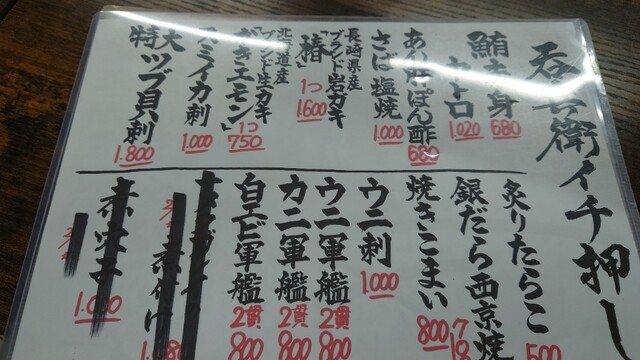 呑兵衛イチ押し
鮪赤身
680
中トロ
1.020
あん肝ぽん酢
680
さば塩焼
1.000
長崎県産
ブランド岩ガキ
「椿」
1つ
1.600
北海道産
ブランド生ガキ
「かきエモン」
1つ
750
スミイカ刺
1.000
特大ツブ貝刺
1.800
炙りたらこ
500
銀だら西京焼
焼きこまい
800
ウニ刺
1.000
ウニ軍艦
2貫
800
カニ軍艦
2貫
800
白エビ軍艦
2貫
800
1.000